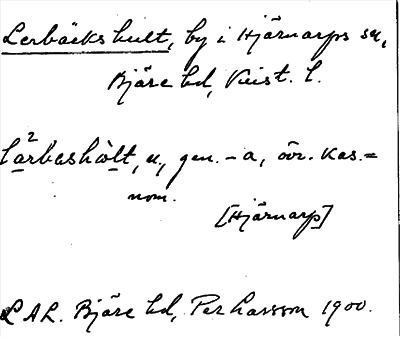 Lerbäckshult, by i Hjärnarps sn,
Bjäre hd, Krist. l.
lårbashòlt, n, gen. -a, övr. kas. =
nom.
[Hjärnarp]
LAL. Bjäre hd, Per Larsson 1900.